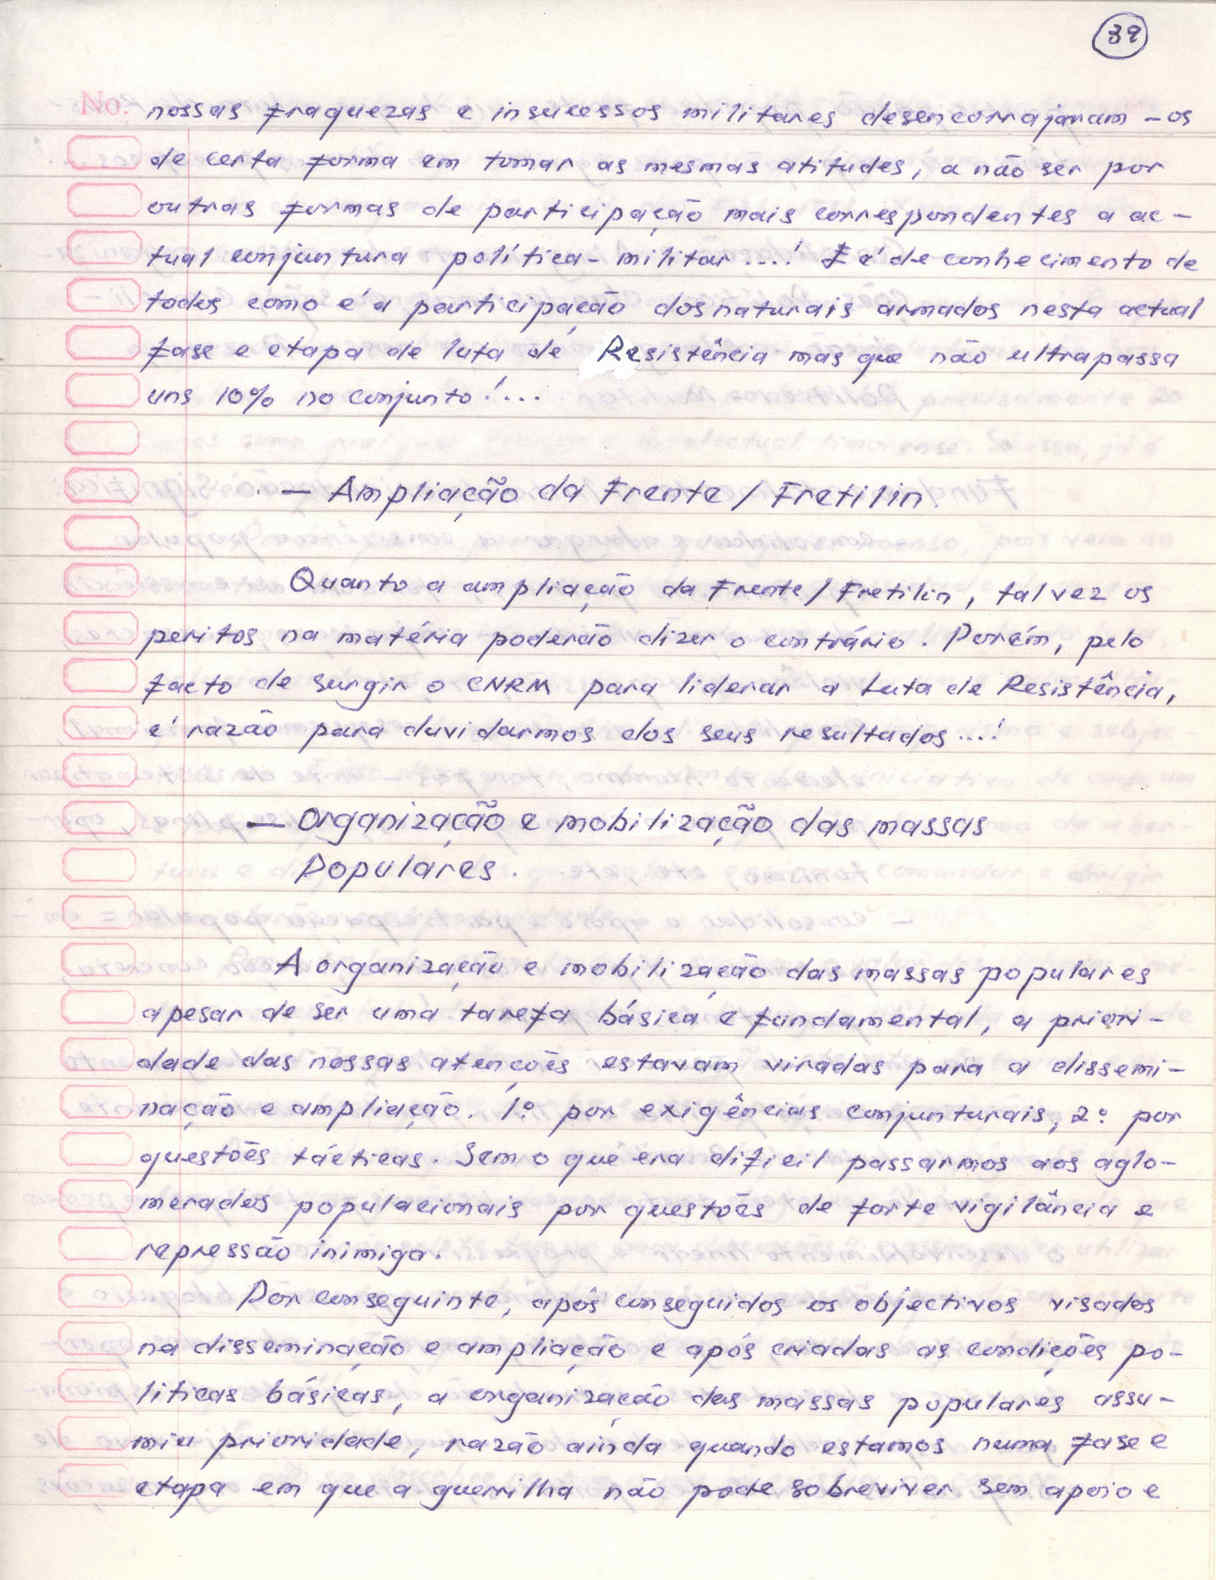 39
No.
nossas fraquezas e insucessos militares desencorrajavam-os
de certa forma em tomar as mesmas atitudes, a não ser por
outras formas de participação mais correspondentes a ac-
tual conjuntura política-militar...! E é de conhecimento de
todos como é a participação dos naturais armados nesta actual
fase e etapa de luta de Resistência mas que não ultrapassa
uns 10% no conjunto!...
— Ampliação da Frente/Fretilin.
Quanto a ampliação da Frente/Fretilin, talvez os
peritos na matéria poderão dizer o contrário. Porém, pelo
facto de surgir o CNRM para liderar a Luta de Resistência,
é razão para duvidarmos dos seus resultados...!
— Organização e mobilização das massas
Populares.
A organização e mobilização das massas populares
apesar de ser uma tarefa básica e fundamental, a priori-
dade das nossas atenções estavam viradas para a dissemi-
nação e ampliação. 1º por exigências conjunturais, 2º por
questões tácticas. Sem o que era dificil passarmos aos aglo-
merados populacionais por questões de forte vigilância e
repressão inimiga.
Por conseguinte, após conseguidos os objectivos visados
na disseminação e ampliação e após criadas as condições po-
liticas básicas, a organização das massas populares assu-
miu prioridade, razão ainda quando estamos numa fase e
etapa em que a guerrilha não pode sobreviver sem apoio e